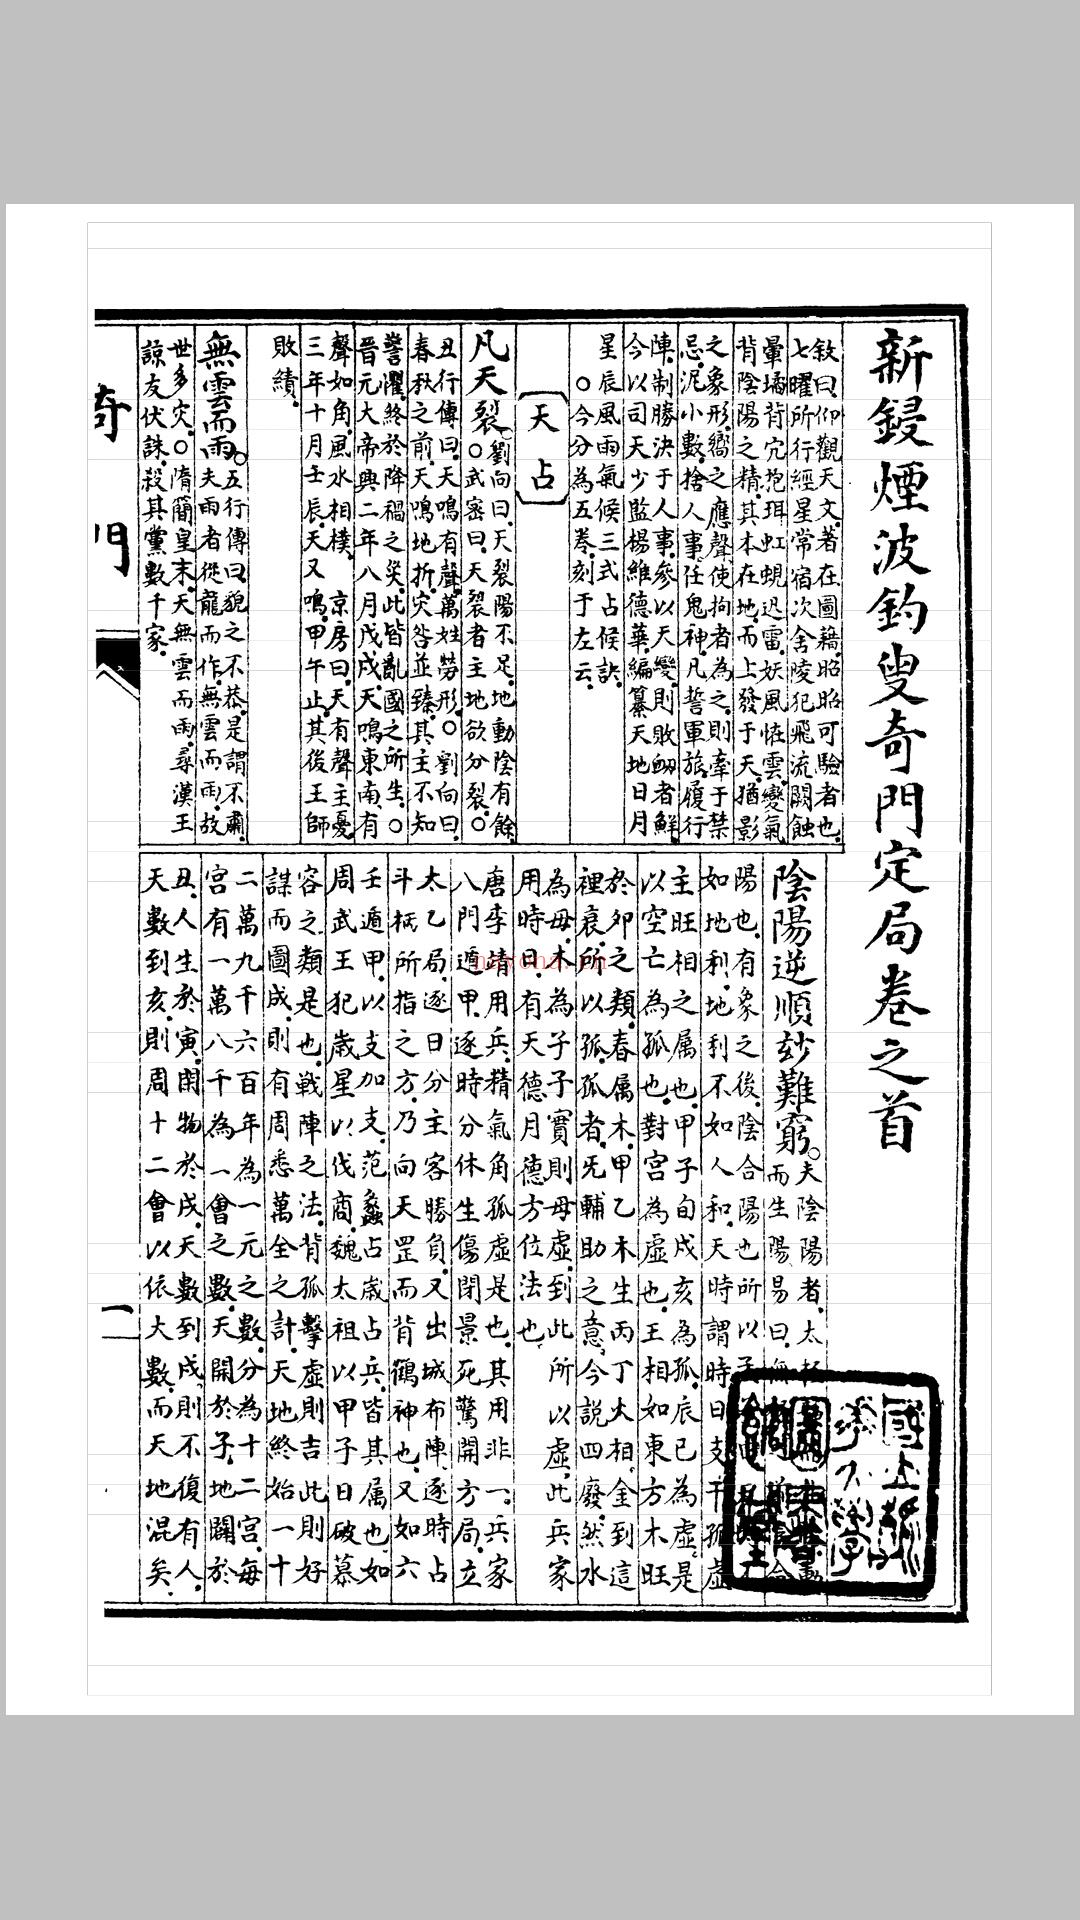 新鋟煙波釣叟奇門定局卷之首
敘曰仰觀天文著在圖籍昭昭可驗者也
七曜所行經星常宿次舍陵犯飛流闕蝕
暈墧背穴抱珥虹蜺迅雷妖風恠雲變氣
背陰陽之精其本在地而上發于天猶影
之象形嚮之應聲使拘者為之則牽于禁
忌泥小數捨人事任鬼神凡誓軍旅履行
陣制勝決于人事參以天變則敗衂者鮮
今以司天少監楊維德華編纂天地日月
星辰風雨氣候三式占候訣
○今分為五卷刻于左云
天占
凡天裂劉向曰天裂陽不足地動陰有餘
○武密曰天裂者主地欲分裂○
五行傳曰天鳴有聲萬姓勞形○劉向曰
春秋之前天鳴地折灾咎並臻其主不知
警懼終於降禍之災此皆亂國之所生○
晉元大帝興二年八月戊戌天鳴東南有
聲如角風水相樸 京房曰天有聲主憂
三年十月壬辰天又鳴甲午止其後王師
敗績
無雲而雨○五行傳曰貌之不恭是謂不肅
夫雨者從龍而作無雲而雨故
世多灾○隋簡皇末天無雲而雨尋漢王
諒友伏誅殺其黨數千家
陰陽逆順玅難窮○夫陰陽者太
而生陽易曰
陽也有象之後陰合陽也所以
如地利地利不如人和天時謂時日支干孤虛
主旺相之属也甲子旬戌亥為孤辰巳為虛是
以空亡為孤也對宮為虛也王相如東方木旺
於卯之類春属木甲乙木生丙丁火相金到這
裡衰所以孤孤者旡輔助之意今説四廢然水
為毋木為子子實則毋虛到此所以虛此兵家
用時日有天德月德方位法也
唐李靖用兵精氣角孤虛是也其用非一兵家
八門遁甲逐時分休生傷閉景死驚開方局立
太乙局逐日分主客勝負又出城布陣逐時占
斗柄所指之方乃向天罡而背鶴神也又如六
壬遁甲以支加支范蠡占歲占兵皆其属也如
周武王犯歲星以伐商魏太祖以甲子日破慕
容之類是也戰陣之法背孤擊虛則吉此則好
謀而圖成則有周悉萬全之計天地終始一十
二萬九千六百年為一元之數分為十二宮每
宮有一萬八千為一會之數天開於子地闢於
丑人生於寅閉物於戌天數到戌則不復有人
天數到亥則周十二會以依大數而天地混矣
奇門
一
nayona.cn